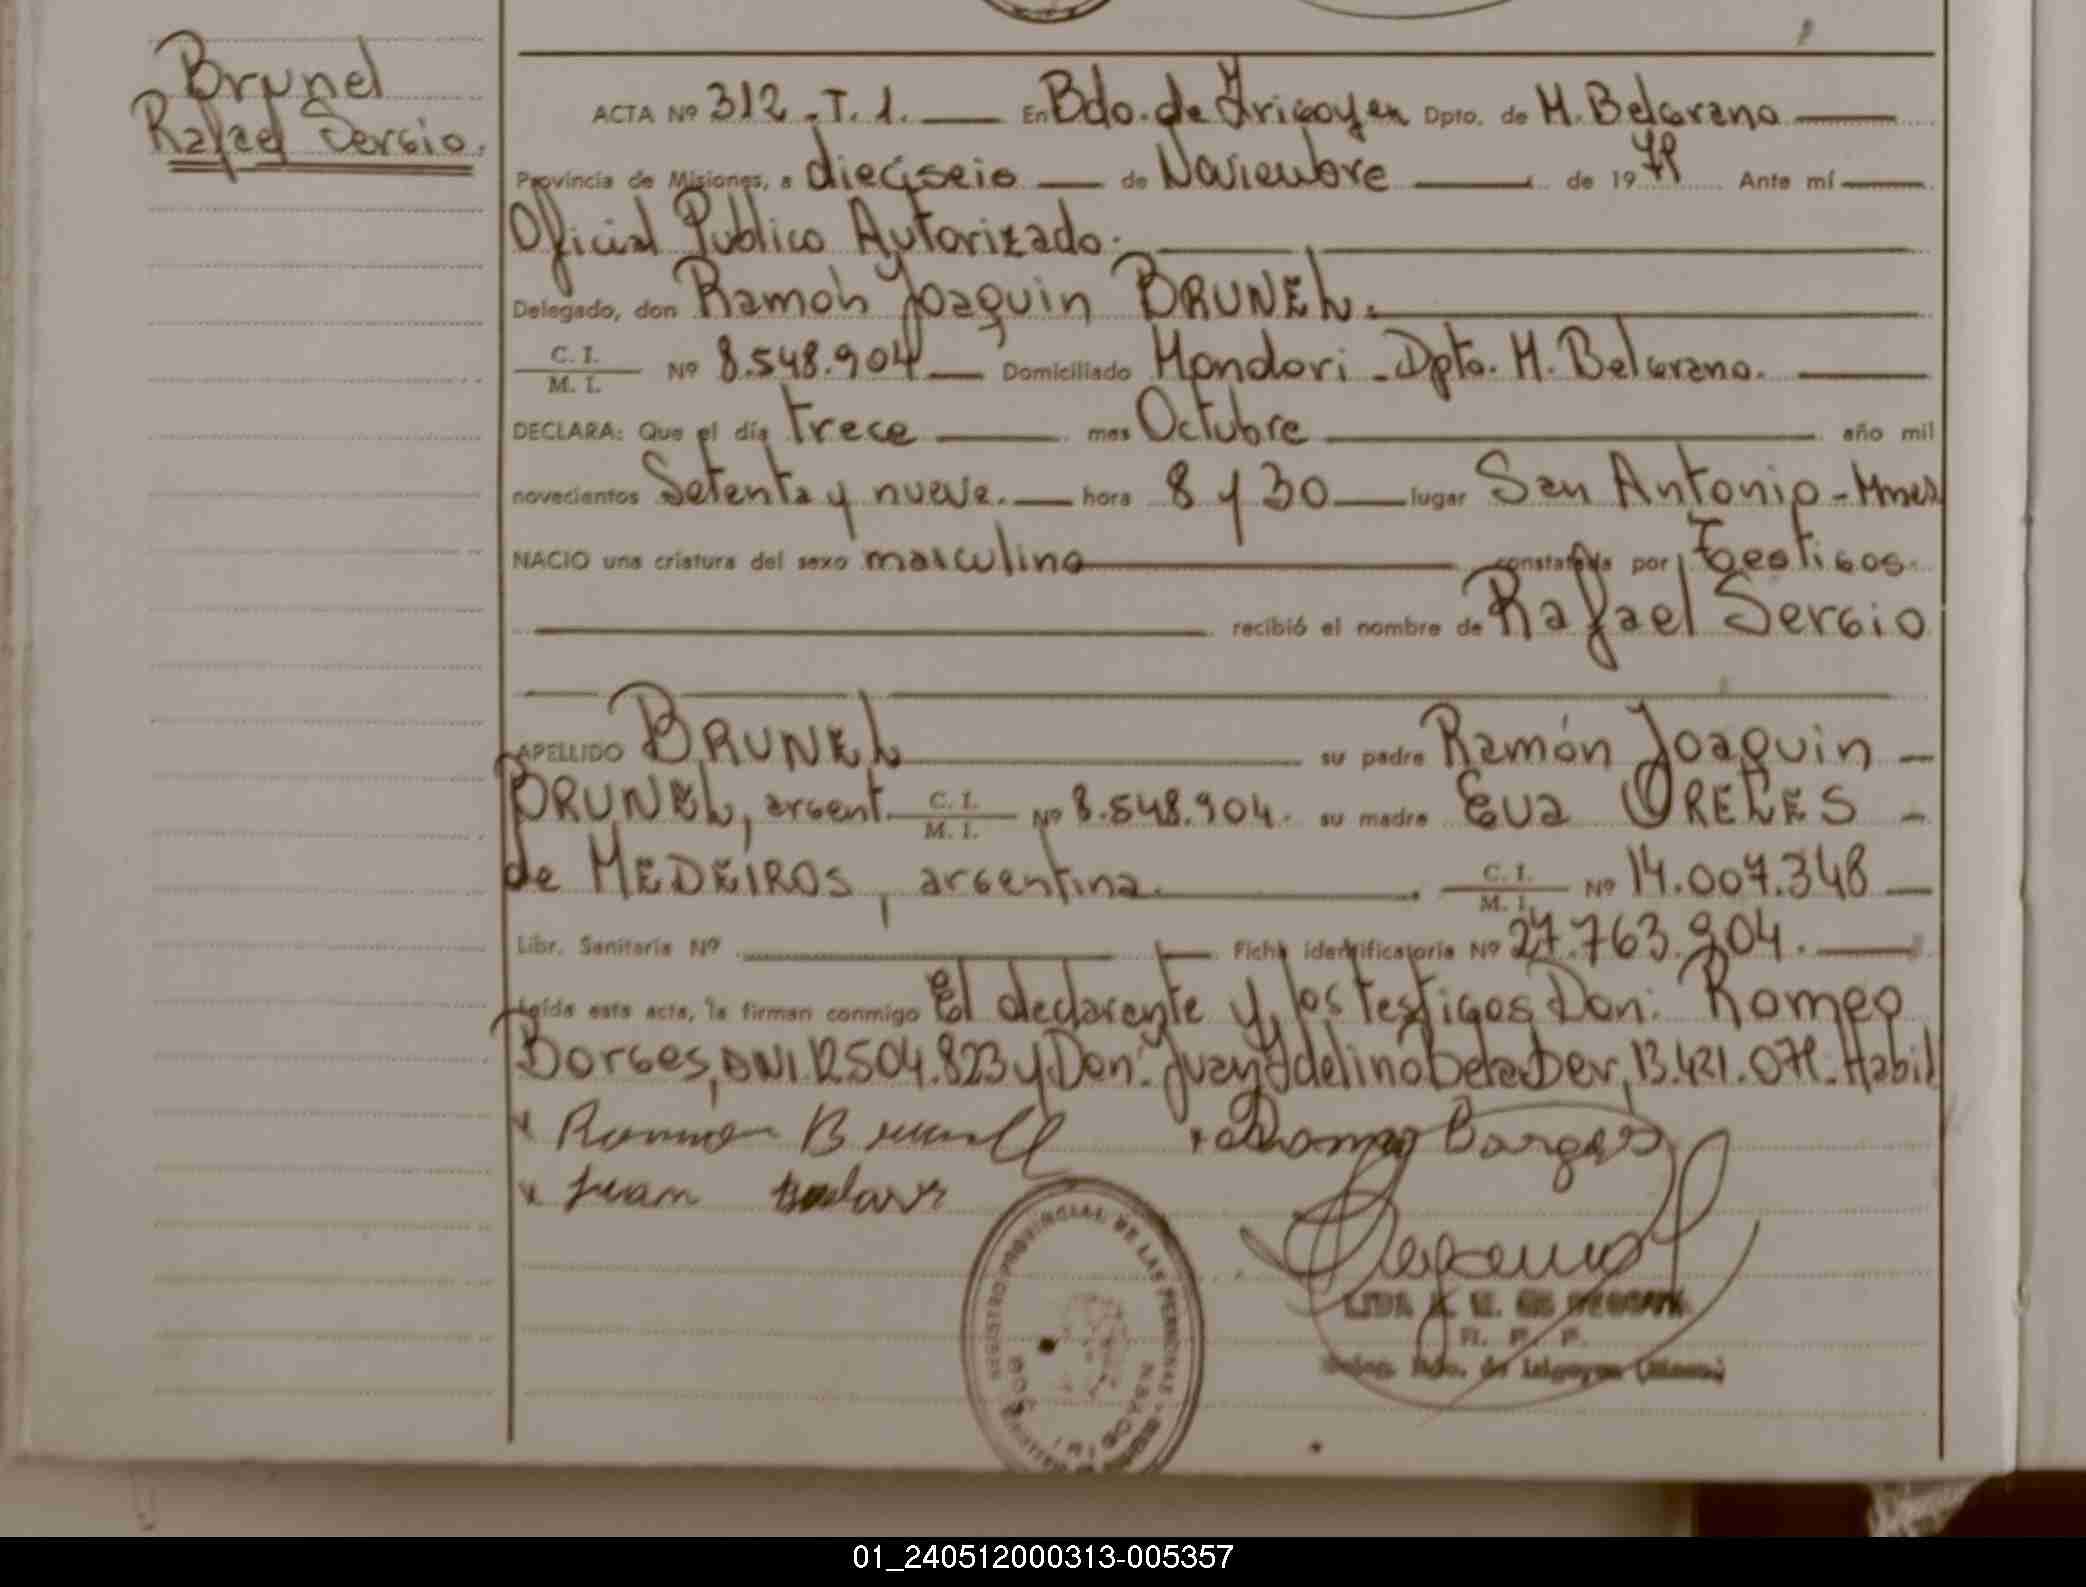 Brunel
Rafael Sergio.
ACTA Nº 312 . T. 1. En Bdo. de Irigoyen Dpto. de M. Belgrano
Provincia de Misiones, a dieciseis de Noviembre de 1979 Ante mí
Oficial Publico Autorizado.
Delegado, don Ramon Joaquin BRUNEL.
C. I.
M. I. Nº 8.548.904 Domiciliado Mondori - Dpto. M. Belgrano.
DECLARA: Que el día trece mes Octubre año mil
novecientos Setenta y nueve. hora 8 y 30 lugar San Antonio - Mnes
NACIO una criatura del sexo masculino constatada por Testigos.
recibió el nombre de Rafael Sergio
APELLIDO BRUNEL su padre Ramón Joaquin
BRUNEL, argent. C. I. M. I. Nº 8.548.904. su madre Eva ORELES
de MEDEIROS, argentina. C. I. M. I. Nº 14.007.348
Libr. Sanitaria Nº Ficha identificatoria Nº 27.763.904.
Leída esta acta, la firman conmigo El declarante y los testigos Don: Romeo
Borges, DNI 12.504.823 y Don: Juan 13.421.071. Habil
x Ramon Brunell x Borges
x Juan
REGISTRO PROVINCIAL DE LAS PERSONAS
R. P. P.
Deleg. Bdo. de Irigoyen (Mnes)
01_240512000313-005357